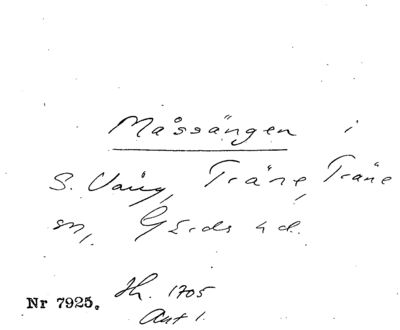 Måssängen i
S. Väng, Träne, Träne
sn, Gärds hd.
Nr 7925. Hr. 1705
Akt 1.